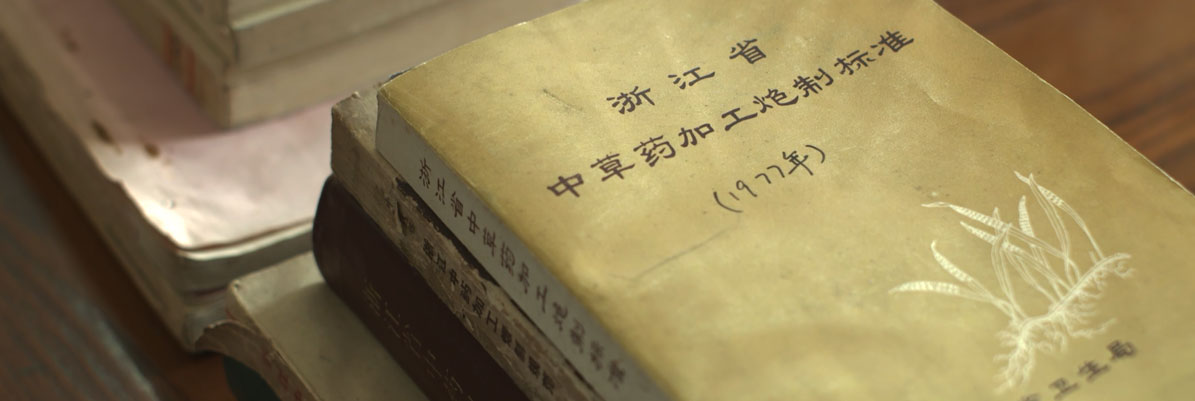 浙江省
中草药加工炮制标准
(1977年)
卫生局
浙江省中草药加工炮制标准